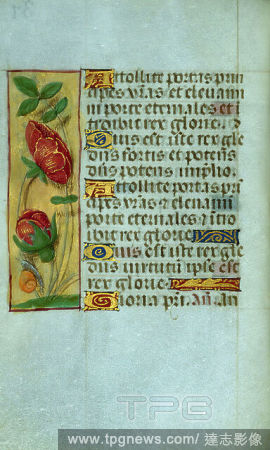 Attollite portas prin
cipes vr̃as et elevam
ni porte eternales et i
troibit rex glorie. &
Quis est iste rex gle
dñs fortis et potens
dñs potens implio.
Attollite portas pri
cipes vr̃as & elevami
porte eternales & ītro
ibit rex glorie
Quis est iste rex gle
dñs virtutū ipse est
rex glorie.
Gloria pr̃i. Añ. An
TPG
www.tpgnews.com/達志影像